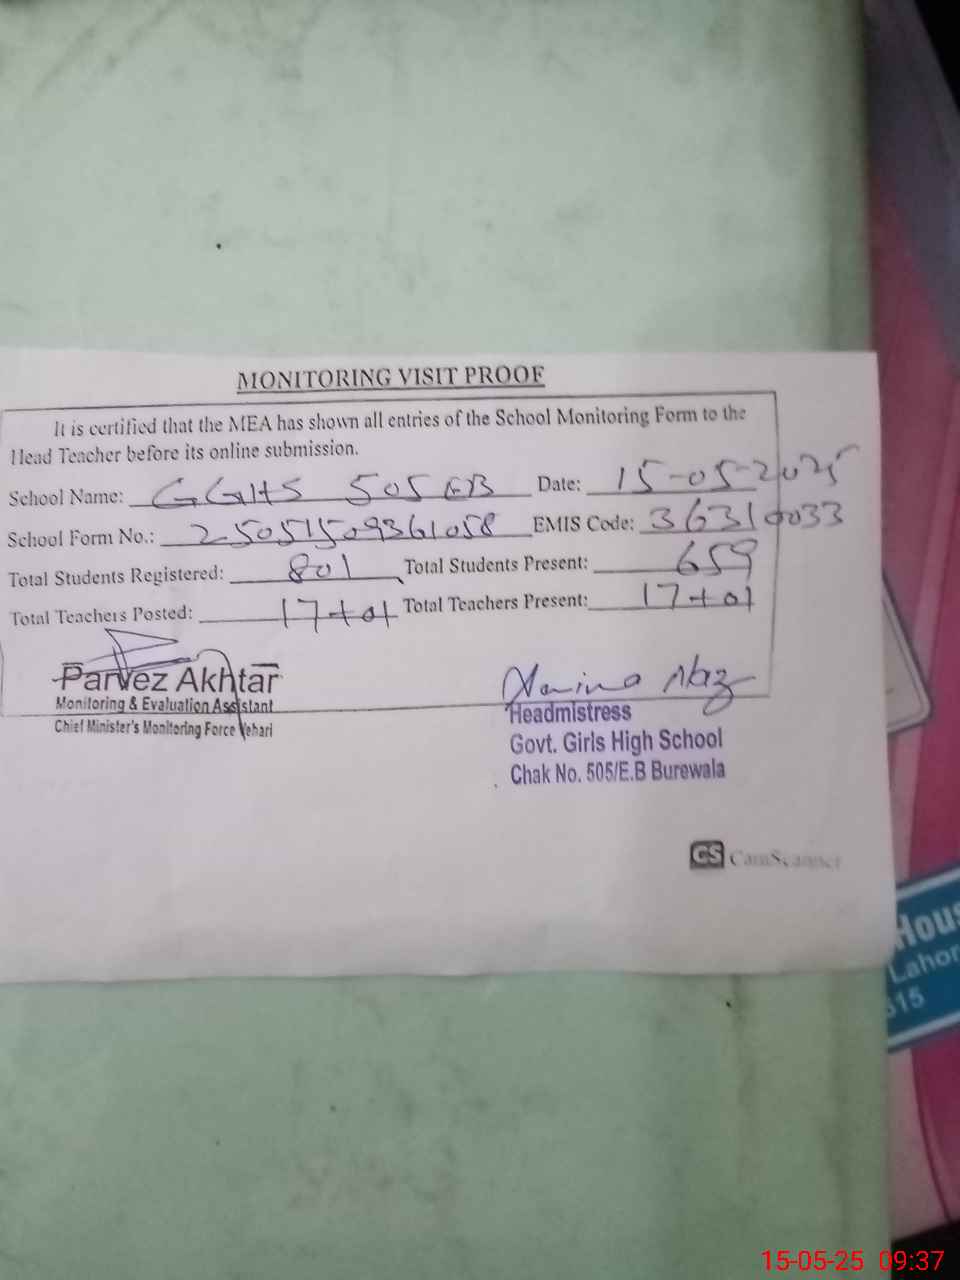 MONITORING VISIT PROOF
It is certified that the MEA has shown all entries of the School Monitoring Form to the
Head Teacher before its online submission.
School Name: GGHS 505 EB Date: 15-05-2025
School Form No.: 25051509361058 EMIS Code: 36310033
Total Students Registered: 801 Total Students Present: 659
Total Teachers Posted: 17+01 Total Teachers Present: 17+01
Parvez Akhtar
Monitoring & Evaluation Assistant
Chief Minister's Monitoring Force Vehari
Naz
Headmistress
Govt. Girls High School
Chak No. 505/E.B Burewala
CS CamScanner
Lahor
315
15-05-25 09:37